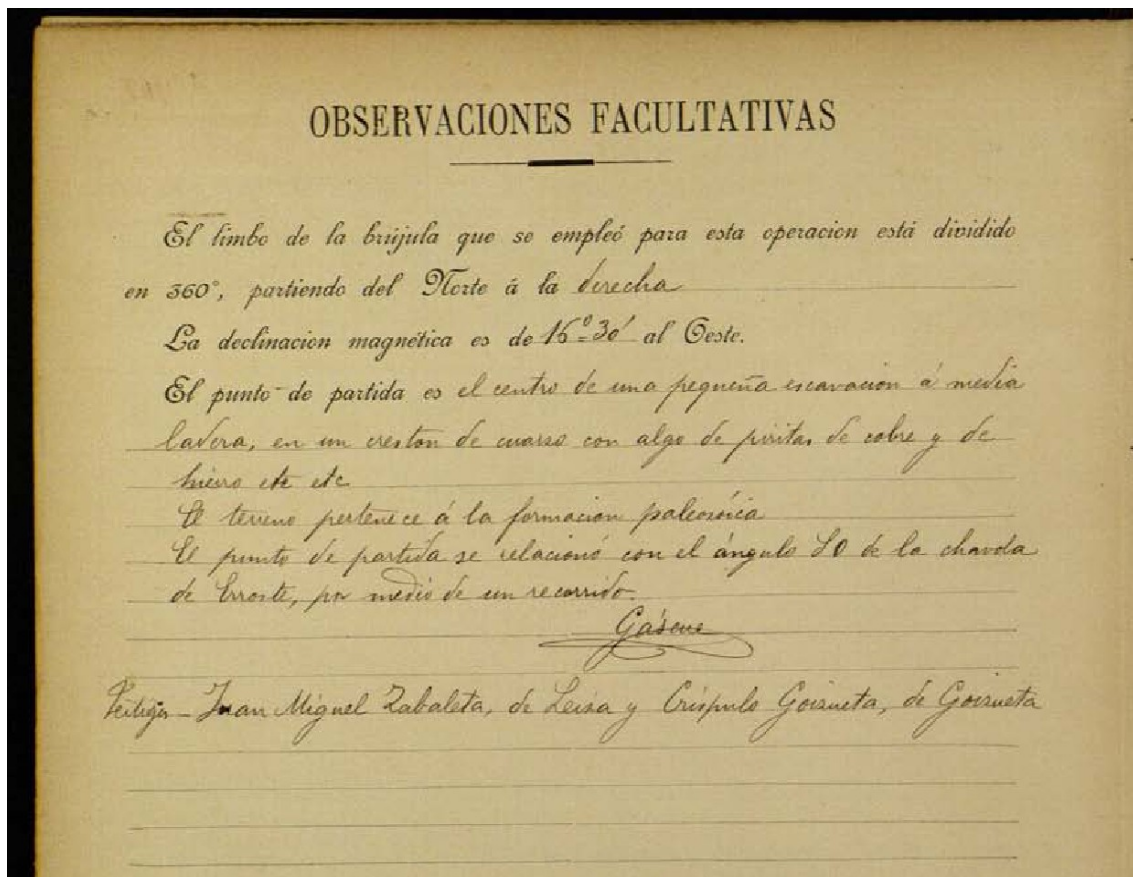 OBSERVACIONES FACULTATIVAS
El limbo de la brújula que se empleó para esta operacion está dividido
en 360°, partiendo del Norte á la derecha
La declinacion magnética es de 16º 30' al Oeste.
El punto de partida es el centro de una pequeña escavacion á media
ladera, en un creston de cuarzo con algo de piritas de cobre y de
hierro etc etc
El terreno pertenece á la formacion paleozóica
El punto de partida se relacionó con el ángulo SO de la chavola
de Erroste, por medio de un recorrido.
Gáscue
Testigos - Juan Miguel Zabaleta, de Leiza y Críspulo Goizueta, de Goizueta